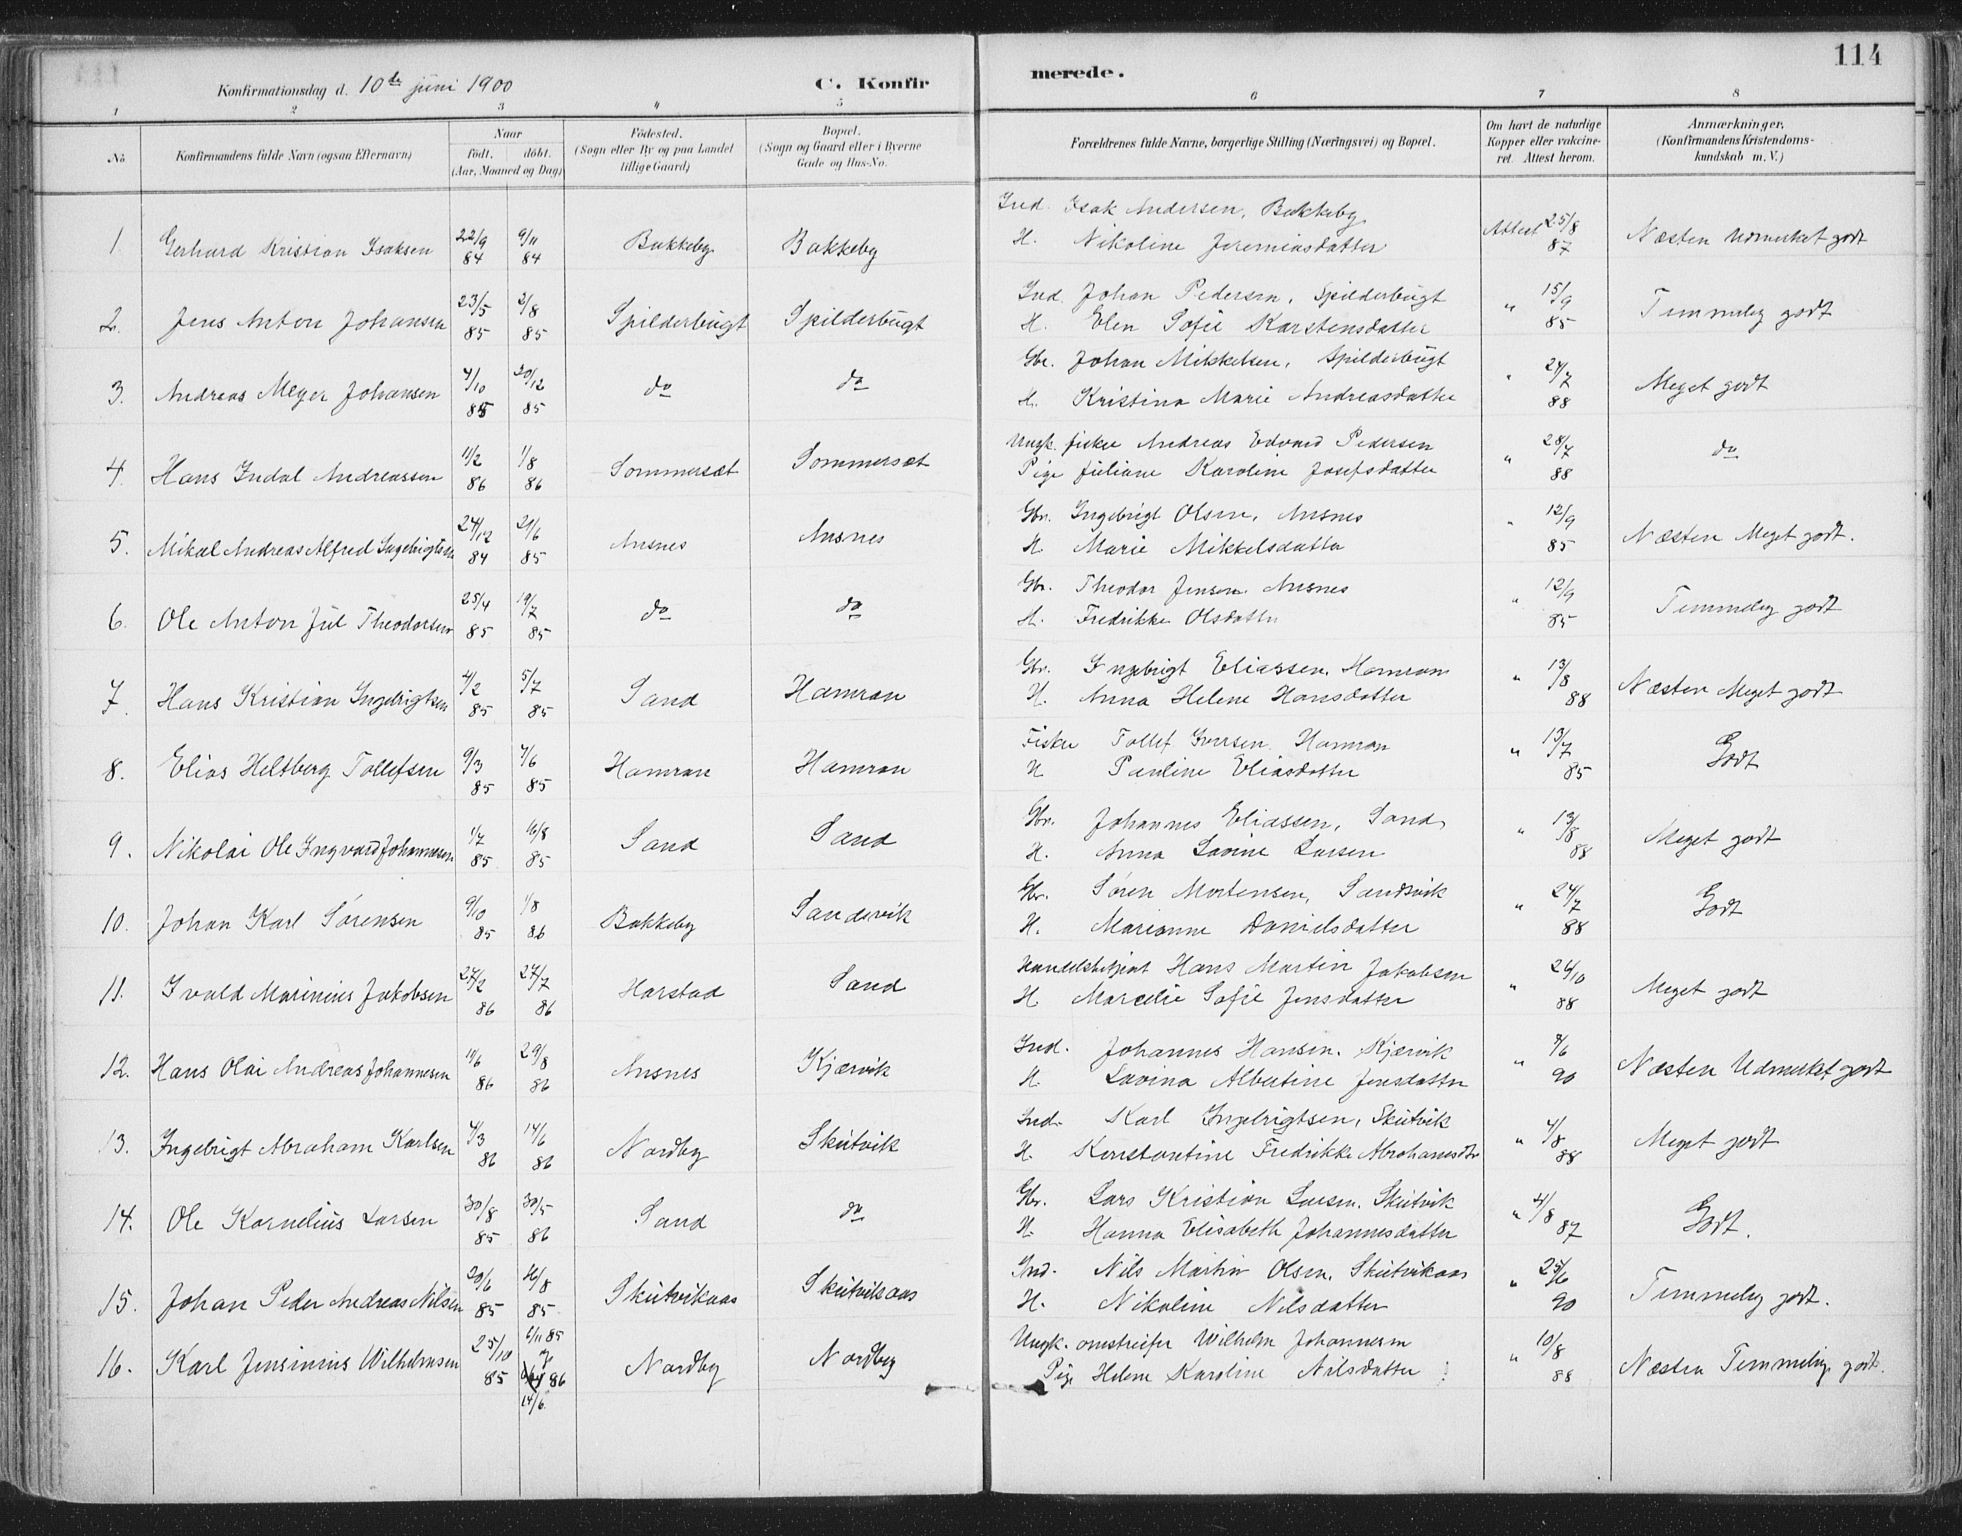 114
Konfirmationsdag d. 10de juni 1900 C. Konfirmerede.
1 2 3 4 5 6 7 8
No Konfirmandens fulde Navn (ogsaa Efternavn) Naar født. døbt. (Aar, Maaned og Dag) Fødested. (Sogn eller By og paa Landet tillige Gaard) Bopæl. (Sogn og Gaard eller i Byerne Gade og Hus-No. Forældrenes fulde Navne, borgerlige Stilling (Næringsvei) og Bopæl. Om havt de naturlige Kopper eller vakcineret. Attest herom. Anmærkninger, (Konfirmandens Kristendomskundskab m. V.)
1. Gerhard Kristian Isaksen 22/9 84 9/11 84 Bakkeby Bakkeby Ind. Isak Andersen, Bakkeby Attest 25/8 87 Næsten Udmerket godt
H. Nikoline Jeremiasdatter
2. Jens Anton Johansen 23/5 85 2/8 85 Spilderbugt Spilderbugt Ind. Johan Pedersen, Spilderbugt " 15/9 85 Temmelig godt
H. Elen Sofie Karstensdatter
3. Andreas Meyer Johansen 4/10 85 20/12 85 do do Gbr. Johan Mikkelsen, Spilderbugt " 24/7 88 Meget godt
H. Kristina Marie Andreasdatter
4. Hans Indal Andreassen 11/2 86 1/8 86 Sommersæt Sommersæt Ungk. fisker Andreas Edvard Pedersen " 28/7 88 do
Pige Juliane Karoline Josefsdatter
5. Mikal Andreas Alfred Ingebrigtsen 24/12 84 21/6 85 Ansnes Ansnes Gbr. Ingebrigt Olsen, Ansnes " 12/9 85 Næsten Meget godt.
H. Marie Mikkelsdatter
6. Ole Anton Jul Theodorsen 25/4 85 19/7 85 do do Gbr. Theodor Jensen Ansnes " 12/9 85 Temmelig godt
H. Fredrikke Olsdatter
7. Hans Kristian Ingebrigtsen 4/2 85 5/7 85 Sand Hamran Gbr. Ingebrigt Eliassen, Hamran " 13/8 88 Næsten Meget godt
H. Anna Helene Hansdatter
8. Elias Heltberg Tollefsen 9/3 85 7/6 85 Hamran Hamran Fisker Tollef Iversen Hamran " 13/7 85 Godt
H Pauline Eliasdatter
9. Nikolai Ole Ingvard Johannesen 1/7 85 16/8 85 Sand Sand Gbr. Johannes Eliassen, Sand " 13/8 88 Meget godt
H. Anna Lovine Larsen
10. Johan Karl Sørensen 9/10 85 1/8 86 Bakkeby Sandsvik Gbr. Søren Mortensen, Sandsvik " 24/7 88 Godt
H. Marianne Danielsdatter
11. Ivald Marinius Jakobsen 27/2 86 27/7 86 Harstad Sand Handelsbetjent Hans Martin Jakobsen " 26/10 88 Meget godt
H Marcelie Sofie Jensdatter
12. Hans Olai Andreas Johannesen 10/6 86 29/8 86 Ansnes Kjærvik Ind. Johannes Hansen. Kjærvik " 8/6 90 Næsten Udmerket godt
H. Lavina Albertine Jensdatter
13. Ingebrigt Abraham Karlsen 4/3 86 14/6 86 Nordby Skutvik Ind. Karl Ingebrigtsen, Skutvik " 4/8 88 Meget godt
H. Konstantine Fredrikke Abrahamsdtr
14. Ole Kornelius Larsen 30/8 85 30/5 86 Sand do Gbr. Lars Kristian Larsen, Skutvik " 4/8 87 Godt.
H. Hanna Elisabeth Johannesdatter
15. Johan Peder Andreas Nilsen 20/6 85 16/8 85 Skutvikaas Skutvikaas Ind. Nils Martin Olsen, Skutvikaas " 25/6 90 Temmelig godt.
H. Nikoline Nilsdatter
16. Karl Jensinius Wilhelmsen 25/10 85 6/11 85 86 14/6 Nordby Nordby Ungk. omstreifer Wilhelm Johannesen " 10/8 88 Næsten Temmelig godt.
Pige Helene Karoline Nilsdatter